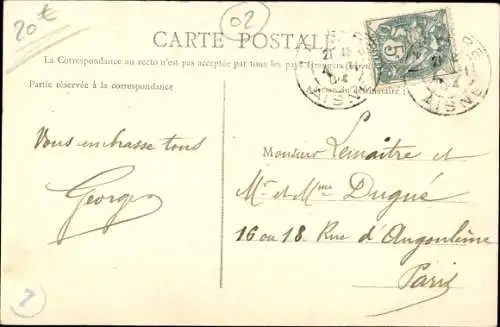 20€
02
CARTE POSTALE
La Correspondance au recto n'est pas acceptée par tous les pays étrangers
Partie réservée à la correspondance
5
AISNE
AISNE
Vous embrasse tous
Georges
Monsieur Lemaitre et
Mr et Mme Dugué
16 ou 18 Rue d'Angoulême
Paris
7